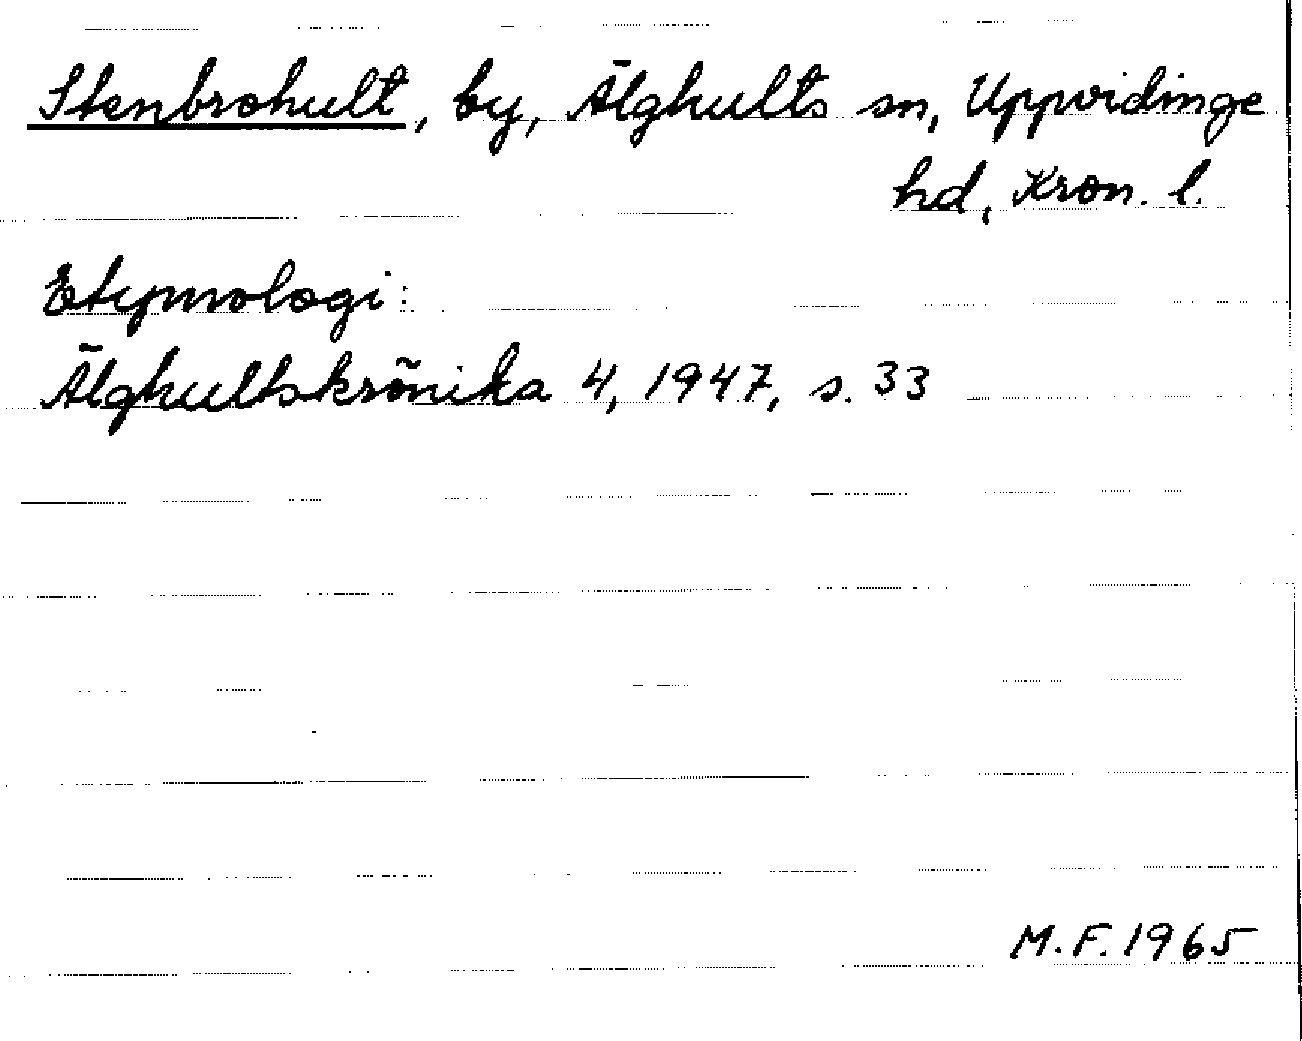 Stenbrohult, by, Älghults sn, Uppvidinge
hd, Kron. l.
Etymologi:
Älghultskrönika 4, 1947, s. 33
M.F. 1965